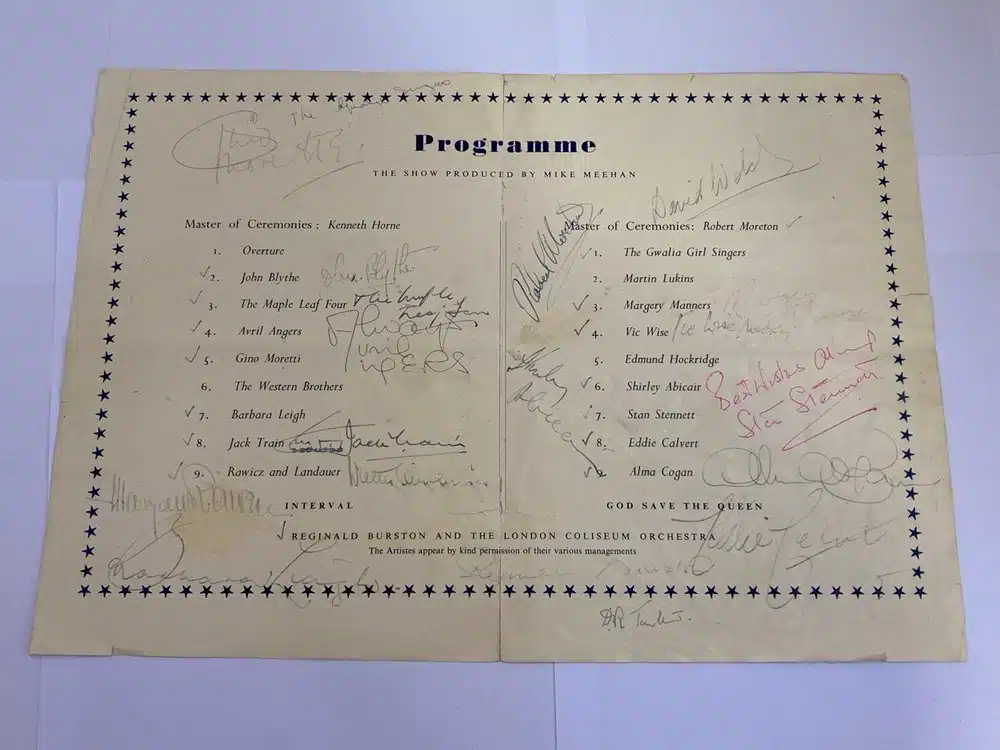 the
Programme
THE SHOW PRODUCED BY MIKE MEEHAN
David
Master of Ceremonies: Kenneth Horne
1. Overture
2. John Blythe John Blythe
3. The Maple Leaf Four The Maple Leaf Four
4. Avril Angers Always Avril Angers
5. Gino Moretti
6. The Western Brothers
7. Barbara Leigh
8. Jack Train Jack Train
9. Rawicz and Landauer
INTERVAL
Robert Moreton
Master of Ceremonies: Robert Moreton
1. The Gwalia Girl Singers
2. Martin Lukins
3. Margery Manners
4. Vic Wise Vic Wise
5. Edmund Hockridge
6. Shirley Abicair
Shirley Abicair
7. Stan Stennett
Best Wishes Always
Stan Stennett
8. Eddie Calvert
9. Alma Cogan Alma Cogan
GOD SAVE THE QUEEN
REGINALD BURSTON AND THE LONDON COLISEUM ORCHESTRA
The Artistes appear by kind permission of their various managements
Barbara Leigh
Burston